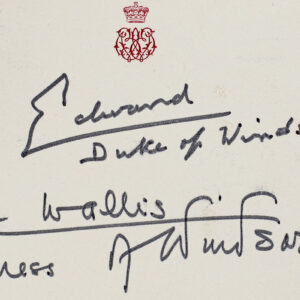 Edward
Duke of Winds
Wallis
ness of Windsor